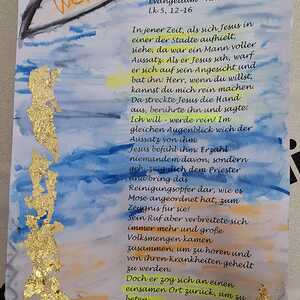 Lk 5, 12-16
In jener Zeit, als sich Jesus in
einer der Städte aufhielt,
siehe, da war ein Mann voller
Aussatz. Als er Jesus sah, warf
er sich auf sein Angesicht und
bat ihn: Herr, wenn du willst,
kannst du mich rein machen.
Da streckte Jesus die Hand
aus, berührte ihn und sagte:
Ich will - werde rein! Im
gleichen Augenblick wich der
Aussatz von ihm.
Jesus befahl ihm: Erzähl
niemandem davon, sondern
geh, zeig dich dem Priester
und bring das
Reinigungsopfer dar, wie es
Mose angeordnet hat, zum
Zeugnis für sie!
Sein Ruf aber verbreitete sich
immer mehr und große
Volksmengen kamen
zusammen, um zu hören und
von ihren Krankheiten geheilt
zu werden.
Doch er zog sich an einen
einsamen Ort zurück, um zu